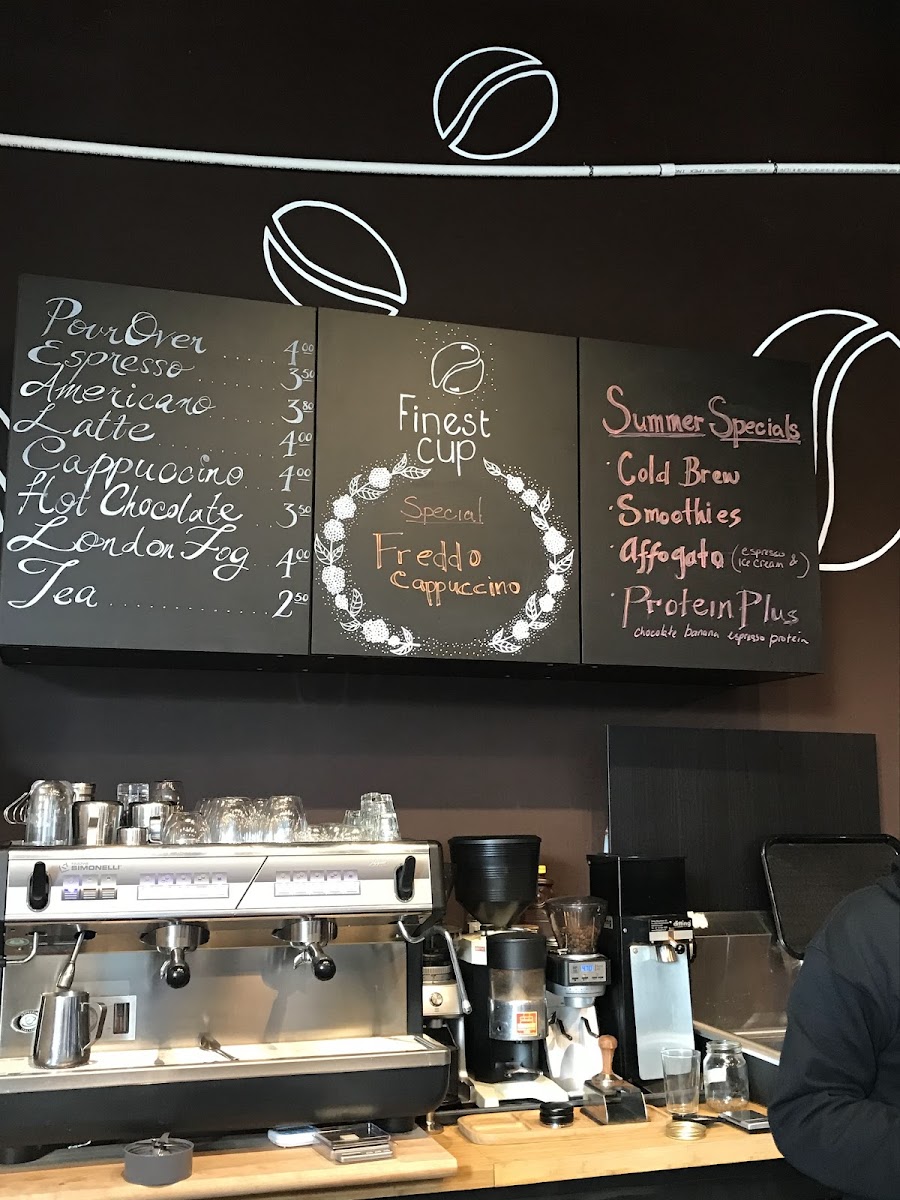 Pour Over ........ 4.00
Espresso ........ 3.50
Americano ........ 3.80
Latte ........ 4.00
Cappuccino .... 4.00
Hot Chocolate .. 3.50
London Fog .. 4.00
Tea ................ 2.50
Finest
cup
Special
Freddo
Cappuccino
Summer Specials
· Cold Brew
· Smoothies
· Affogato (espresso & ice cream)
· Protein Plus
chocolate banana espresso protein
SIMONELLI